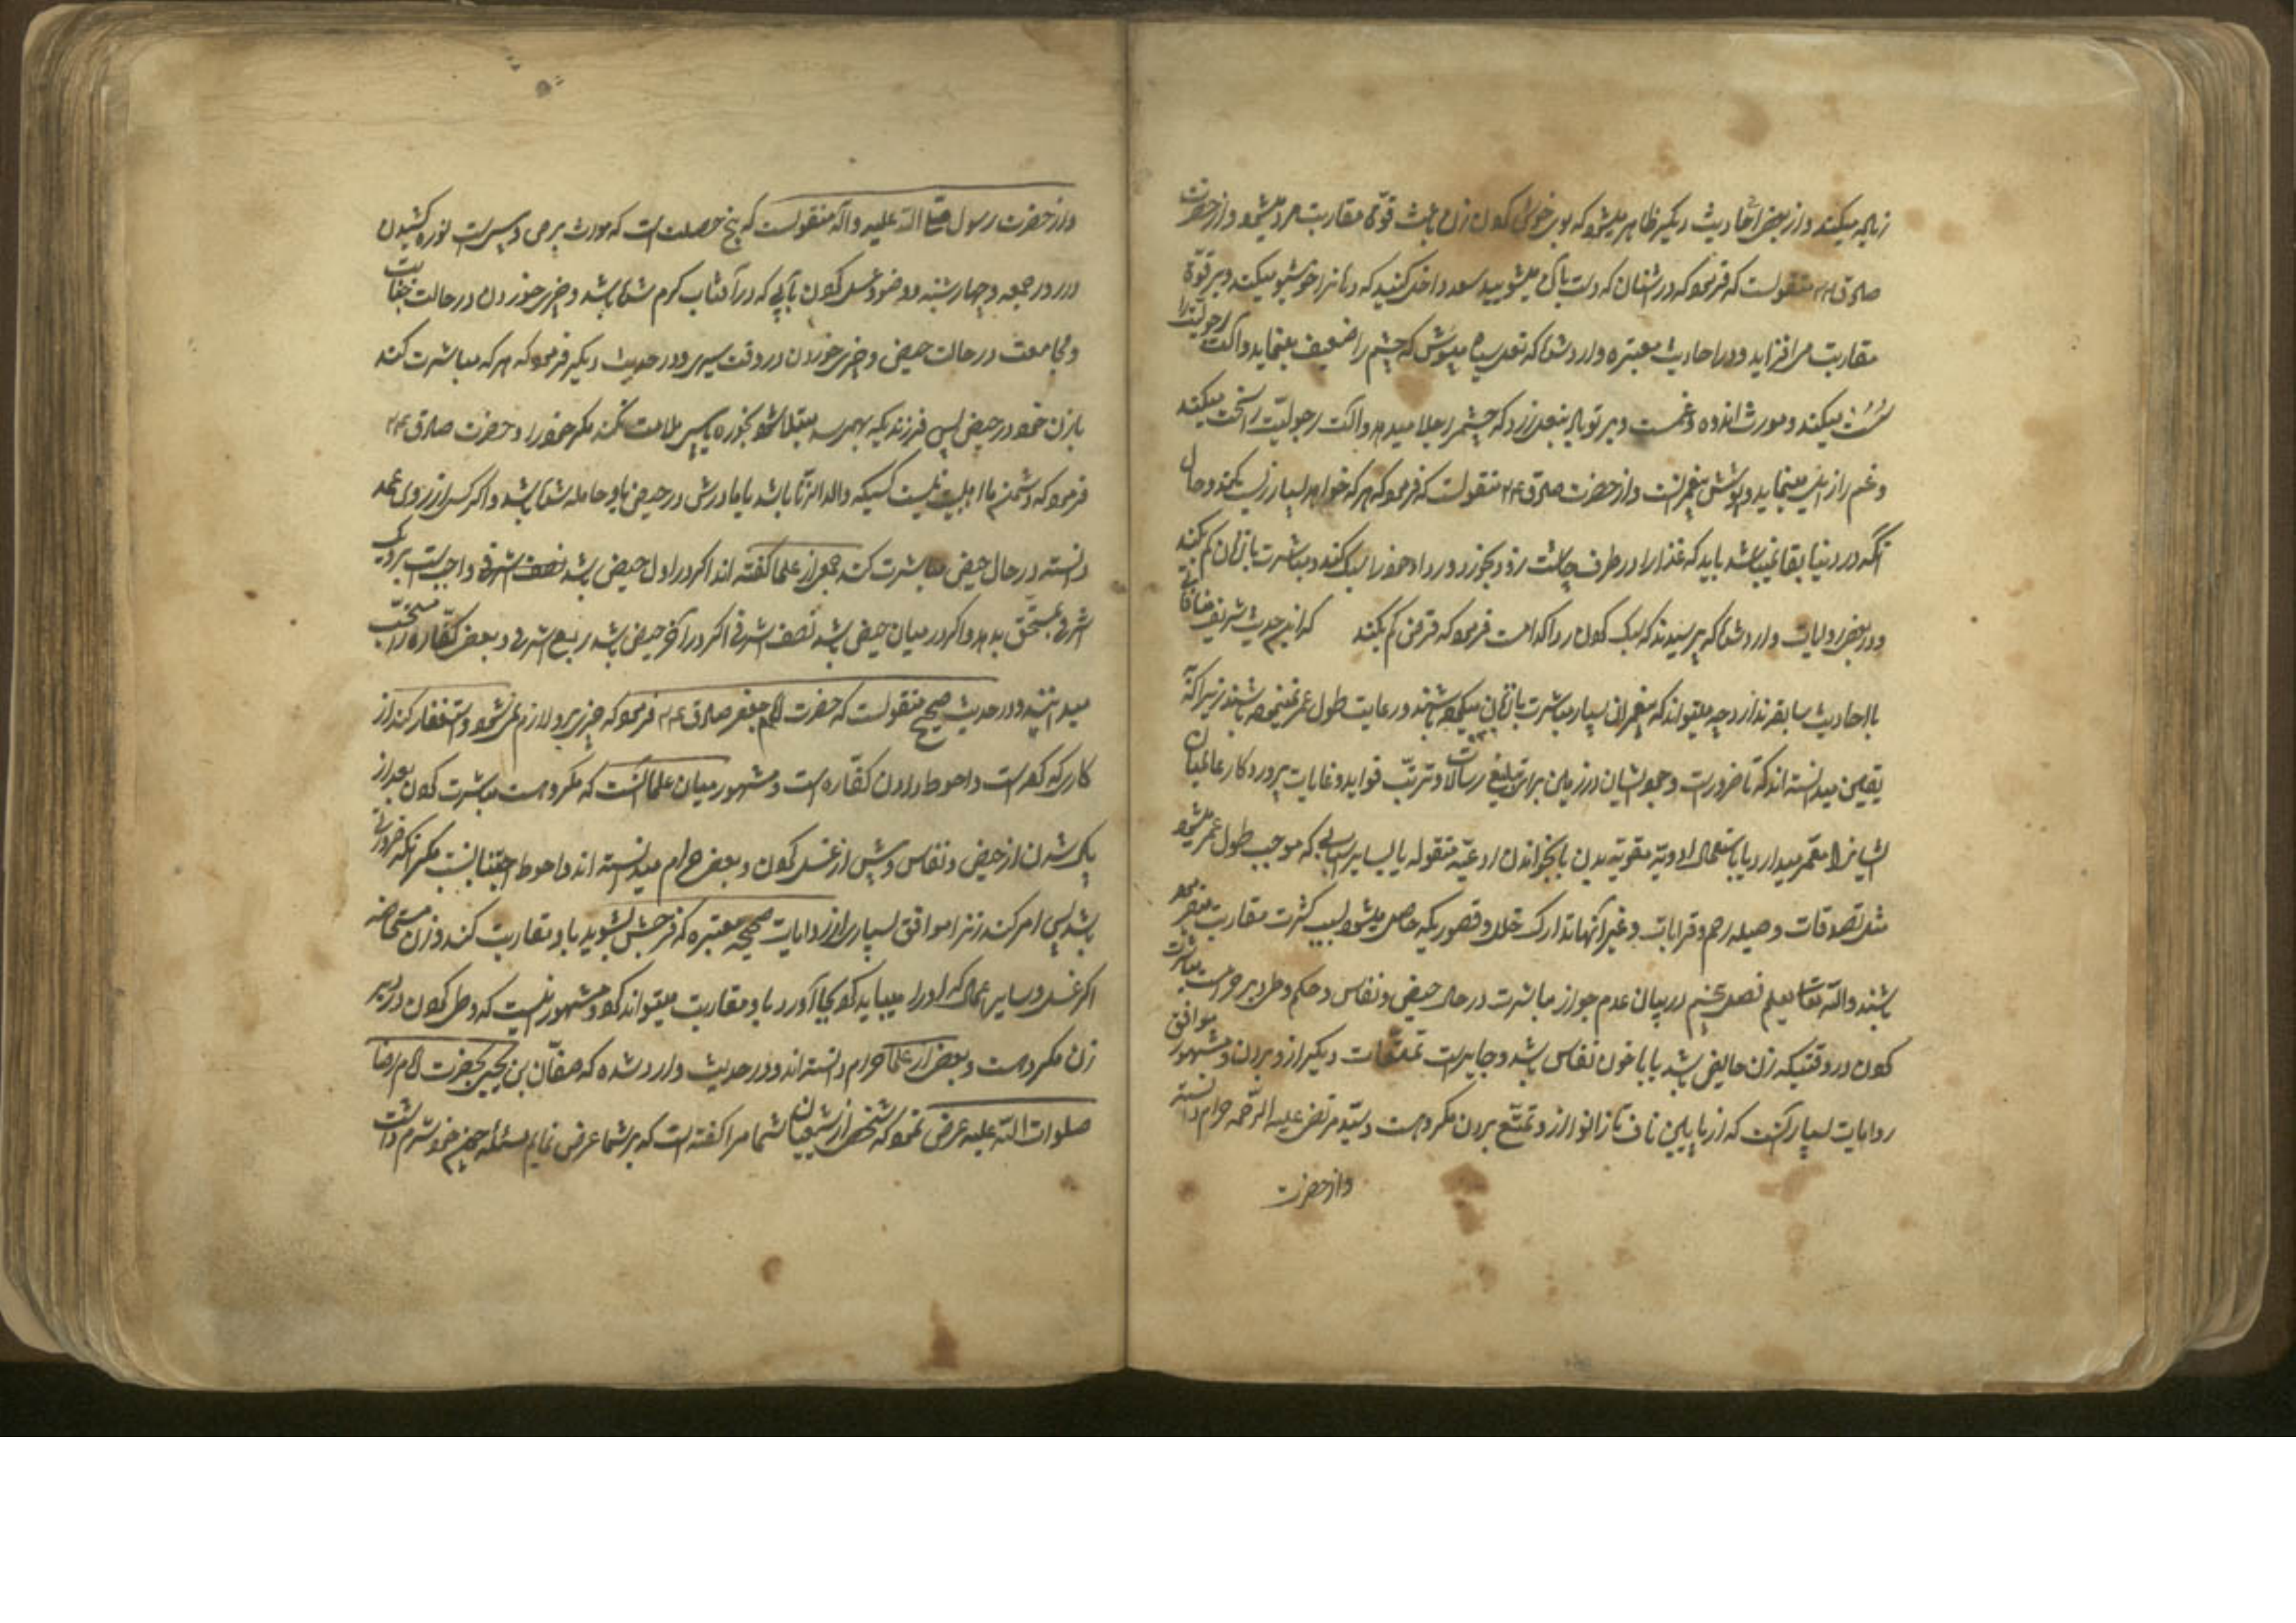 زیاده میکند و از بعض احادیث دیگر ظاهر میشود که بوی خوش کردن باعث قوّة مقاربت مرد میشود و از حضرت
صادق ع م منقولست که فرمود که در اشنان که دست بآن میشویید سعد داخل کنید که دهانرا خوشبو میکند و بر قوّة
مقاربت می افزاید و در احادیث معتبره وارد شده که نعل سیاه مپوش که چشم را ضعیف مینماید و آلت رجولیّت را
سُست میکند و مورث اندوه و غمست و بر تو باد بنعل زرد که چشم را جلا میدهد و آلت رجولیّت را سخت میکند
و غم را زایل مینماید و پوشش پیغمبرانست و از حضرت صادق ع م منقولست که فرمود که هر که خواهد بسیار زیست بکند و حال
آنکه در دنیا بقا نمیباشد باید که غذا را در طرف چاشت زود بخورد و ردا و خود را سبک کند و مباشرت با زنان کم بکند
و در بعض روایات وارد شده که پرسیدند که سبک کردن ردا کدامست فرمود که قرض کم بکند که این حدیث شریف منافاتی
با احادیث سابقه ندارد چه میتواند که پیغمبرانی بسیار مباشرت با زنان میکرده باشند و رعایت طول عمر نمینموده باشند زیرا که
یقین میدانسته اند که تا ضرورت وجود ایشان در زمین برای تبلیغ رسالات و ترتّب فواید و غایات پروردگار عالمیان
ایشانرا معمّر میدارد یا باستعمال ادویهٔ مقویهٔ بدن یا بخواندن ادعیهٔ منقوله یا بسایر اسبابی که موجب طول عمر میشود
مثل تصدقات و صلهٔ رحم و قرابات و غیر آنها تدارک خلل و قصوریکه حاصل میشود بسبب کثرت مقاربت
باشند والله تعالی یعلم فصل پنجم در بیان عدم جواز مباشرت در حال حیض و نفاس و حکم وطی دبر حرامست مباشرت
کردن در وقتیکه زن حایض باشد یا با خون نفاس باشد و جایزست تمتّعات دیگر از و بردن و مشهور موافق
روایات بسیار آنست که از پایین ناف تا زانو از و تمتّع بردن مکروهست و سیّد مرتضی علیه الرّحمه حرام دانسته
و از حضرت
و از حضرت رسول صلی الله علیه و آله منقولست که پنج خصلت است که مورث برص و پیس است نوره کشیدن
در روز جمعه و چهارشنبه و وضو و غسل کردن بآبی که در آفتاب گرم شده باشد و چیزی خوردن در حالت جنابت
و مجامعت در حالت حیض و چیزی خوردن در وقت سیری و در حدیث دیگر فرمود که هر که مباشرت کند
با زن خود در حیض پس فرزندیکه بهم رسد مبتلا شود بخوره یا پیس ملامت نکند مگر خود را و حضرت صادق ع م
فرمود که دشمن ما اهلبیت نیست کسیکه ولد الزّنا باشد یا مادرش در حیض باو حامله شده باشد و اگر کسی از روی عمد
دانسته در حال حیض مباشرت کند جمعی از علما گفته اند اگر در اول حیض باشد نصف اشرفی واجبست یک
اشرفی بمستحق بدهد و اگر در میان حیض باشد نصف اشرفی اگر در آخر حیض باشد ربع اشرفی و بعض کفّاره را مستحب
میدانند و در حدیث صحیح منقولست که حضرت امام جعفر صادق ع م فرمود که چیزی برو لازم نمیشود و استغفار کند از
کاری که کرده است و احوط دادن کفّاره است و مشهور میان علما آنست که مکروهست مباشرت کردن بعد از
پاک شدن از حیض و نفاس و پیش از غسل کردن و بعض حرام میدانسته اند و احوط اجتنابست مگر آنکه ضرورتی
باشد پس امر کند زنرا موافق بسیاری از روایات صحیحه معتبره که فرجش بشوید با و مقاربت کند و زن مستحاضه
اگر غسل و سایر اعمالی که او را میباید کرد بجا آورد با و مقاربت میتواند کرد و مشهور اینست که وطی کردن در دبر
زن مکروهست و بعض از علما حرام دانسته اند و در حدیث وارد شده که صفوان بن یحیی بحضرت امام رضا
صلوات الله علیه عرض نمود که شخصی از شیعیان شما مرا گفته است که بر شما عرض نمایم مسئله چند خود شرم داشت